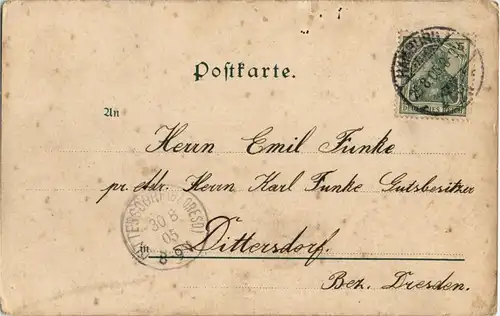 Postkarte.
An
Herrn Emil Funke
pr. Adr. Herrn Karl Funke Gutsbesitzer
in Dittersdorf.
Bez. Dresden.
30 8
05
8-9V